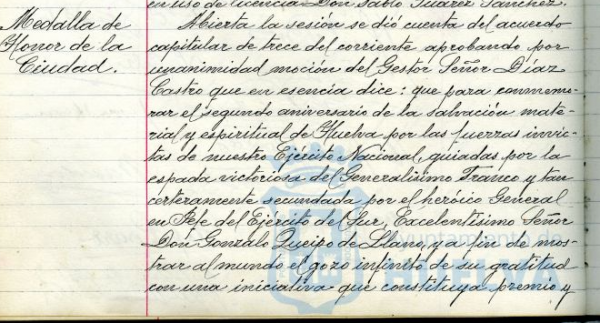 en uso de licencia Don Pablo Suarez Sanchez.
Medalla de
Honor de la
Ciudad.
Abierta la sesión se dió cuenta del acuerdo
capitular de trece del corriente aprobando por
unanimidad moción del Gestor Señor Díaz
Castro que en esencia dice: que para conmemo-
rar el segundo aniversario de la salvación mate-
rial y espiritual de Huelva por las fuerzas invic-
tas de nuestro Ejército Nacional, guiadas por la
espada victoriosa del Generalísimo Franco y tan
certeramente secundada por el heróico General
en Jefe del Ejército del Sur, Excelentísimo Señor
Don Gonzalo Queipo de Llano, y a fin de mos-
trar al mundo el gozo infinito de su gratitud
con una iniciativa que constituya premio y
Ayuntamiento de
HUELVA